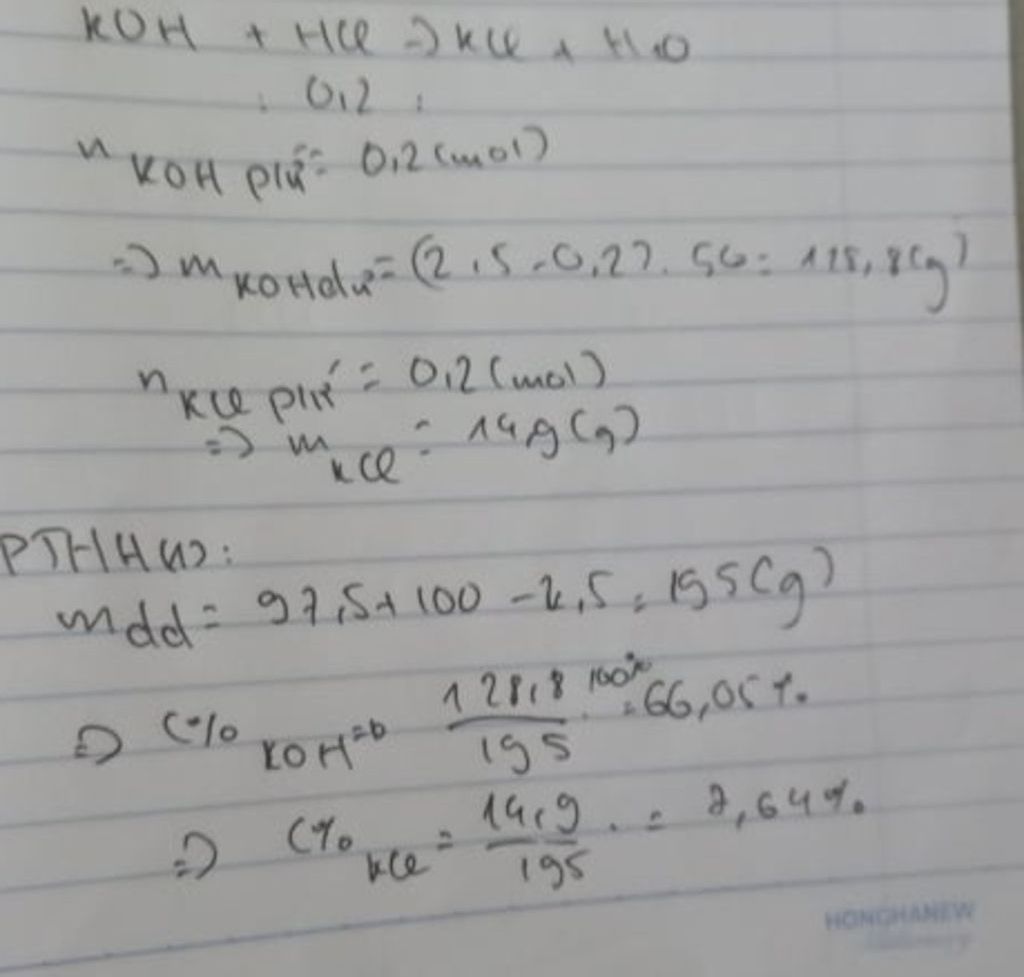 KOH + HCl => KCl + H2O
0,2
n KOH pứ = 0,2 (mol)
=> m KOH dư = (2,5 - 0,2). 56 = 128,8 (g)
n KCl pứ = 0,2 (mol)
=> m KCl = 14,9 (g)
PTHH (1):
m dd = 97,5 + 100 - 2,5 = 195 (g)
=> C% KOH = 128,8 100% = 66,05%
195
=> C% KCl = 14,9 . = 7,64%
195
HONGHANEW